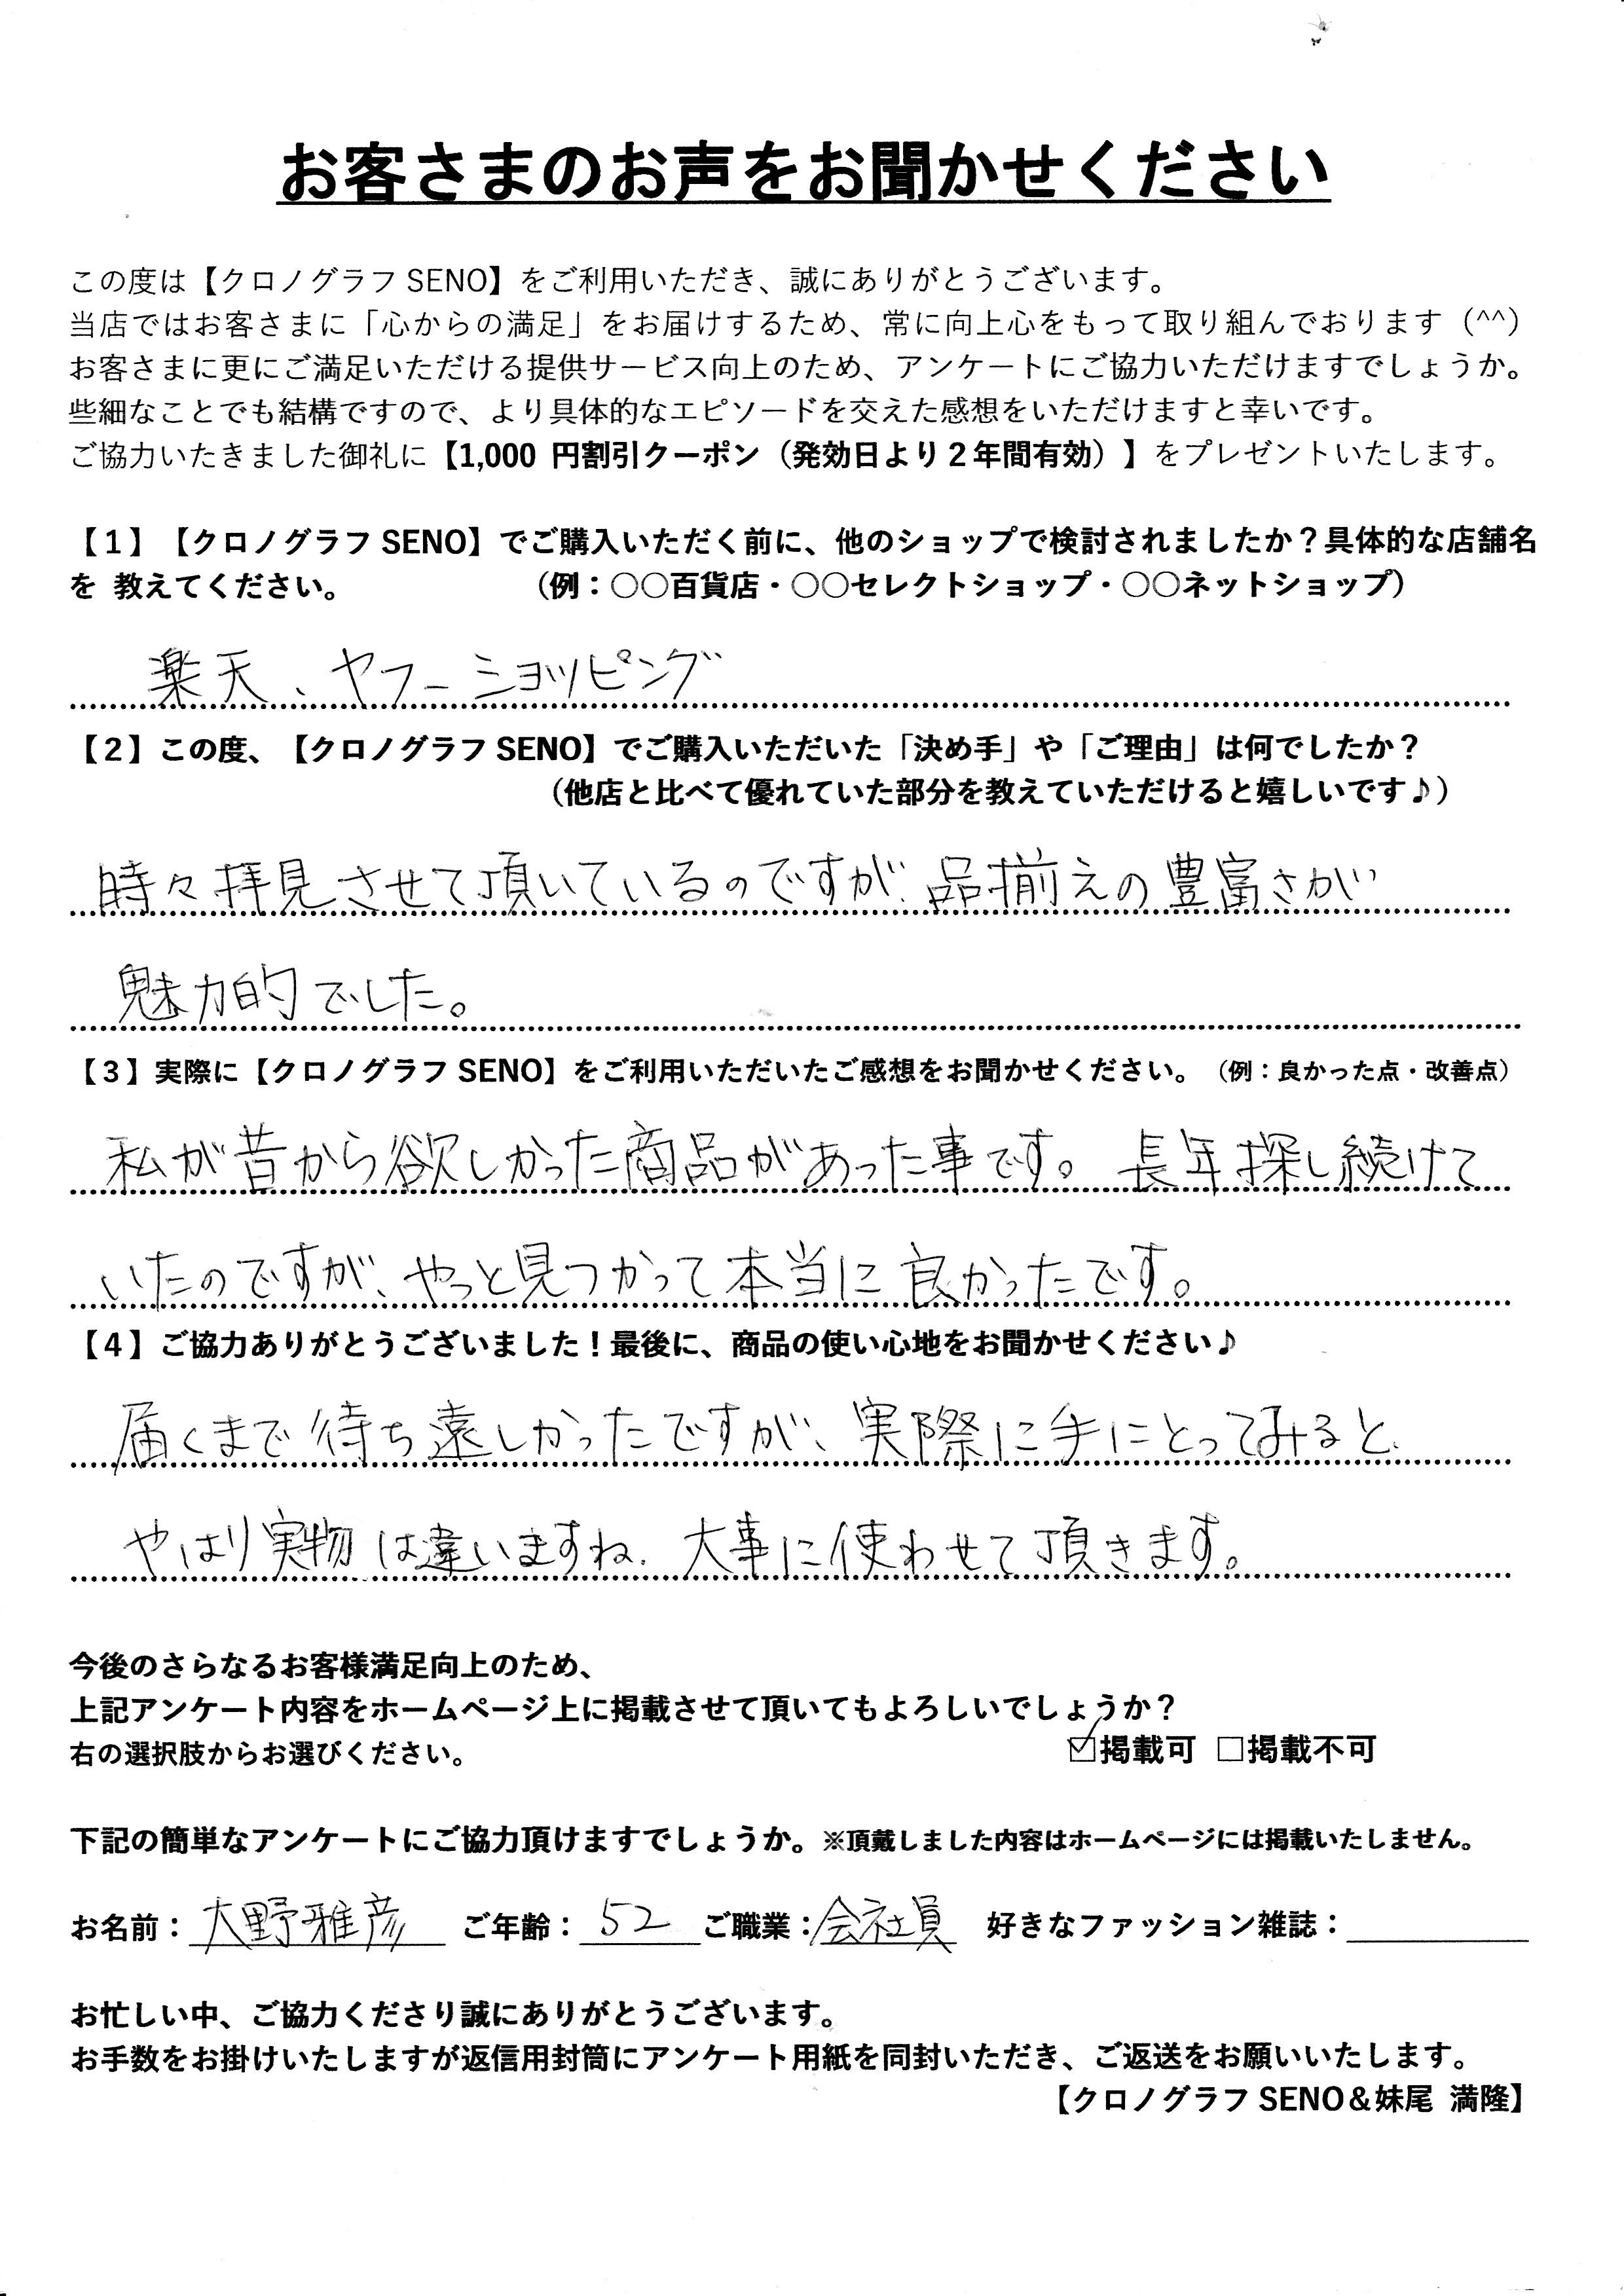 お客さまのお声をお聞かせください
この度は【クロノグラフ SENO】をご利用いただき、誠にありがとうございます。
当店ではお客さまに「心からの満足」をお届けするため、常に向上心をもって取り組んでおります（^^）
お客さまに更にご満足いただける提供サービス向上のため、アンケートにご協力いただけますでしょうか。
些細なことでも結構ですので、より具体的なエピソードを交えた感想をいただけますと幸いです。
ご協力いたきました御礼に【1,000 円割引クーポン（発効日より２年間有効）】をプレゼントいたします。
【１】【クロノグラフ SENO】でご購入いただく前に、他のショップで検討されましたか？具体的な店舗名
を 教えてください。 （例：○○百貨店・○○セレクトショップ・○○ネットショップ）
楽天、ヤフーショッピング
【２】この度、【クロノグラフ SENO】でご購入いただいた「決め手」や「ご理由」は何でしたか？
（他店と比べて優れていた部分を教えていただけると嬉しいです♪）
時々拝見させて頂いているのですが、品揃えの豊富さが
魅力的でした。
【３】実際に【クロノグラフ SENO】をご利用いただいたご感想をお聞かせください。（例：良かった点・改善点）
私が昔から欲しかった商品があった事です。長年探し続けて
いたのですが、やっと見つかって本当に良かったです。
【４】ご協力ありがとうございました！最後に、商品の使い心地をお聞かせください♪
届くまで待ち遠しかったですが、実際に手にとってみると、
やはり実物は違いますね、大事に使わせて頂きます。
今後のさらなるお客様満足向上のため、
上記アンケート内容をホームページ上に掲載させて頂いてもよろしいでしょうか？
右の選択肢からお選びください。 ☑掲載可 □掲載不可
下記の簡単なアンケートにご協力頂けますでしょうか。※頂戴しました内容はホームページには掲載いたしません。
お名前：大野雅彦 ご年齢：52 ご職業：会社員 好きなファッション雑誌：
お忙しい中、ご協力くださり誠にありがとうございます。
お手数をお掛けいたしますが返信用封筒にアンケート用紙を同封いただき、ご返送をお願いいたします。
【クロノグラフ SENO＆妹尾 満隆】